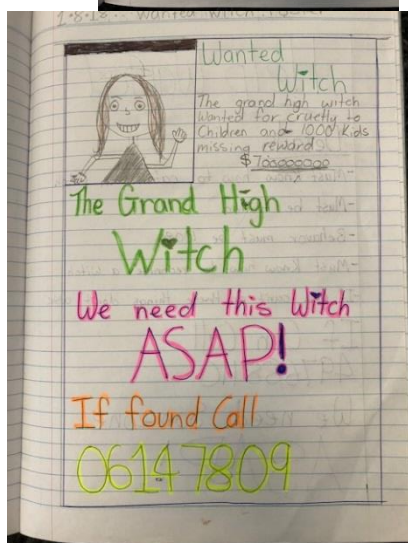 Wanted Witch Poster
Wanted
Witch
The grand high witch
wanted for cruelty to
Children and 1000 kids
missing reward
$700000000
The Grand High
Witch
We need this Witch
ASAP!
If found Call
06147809